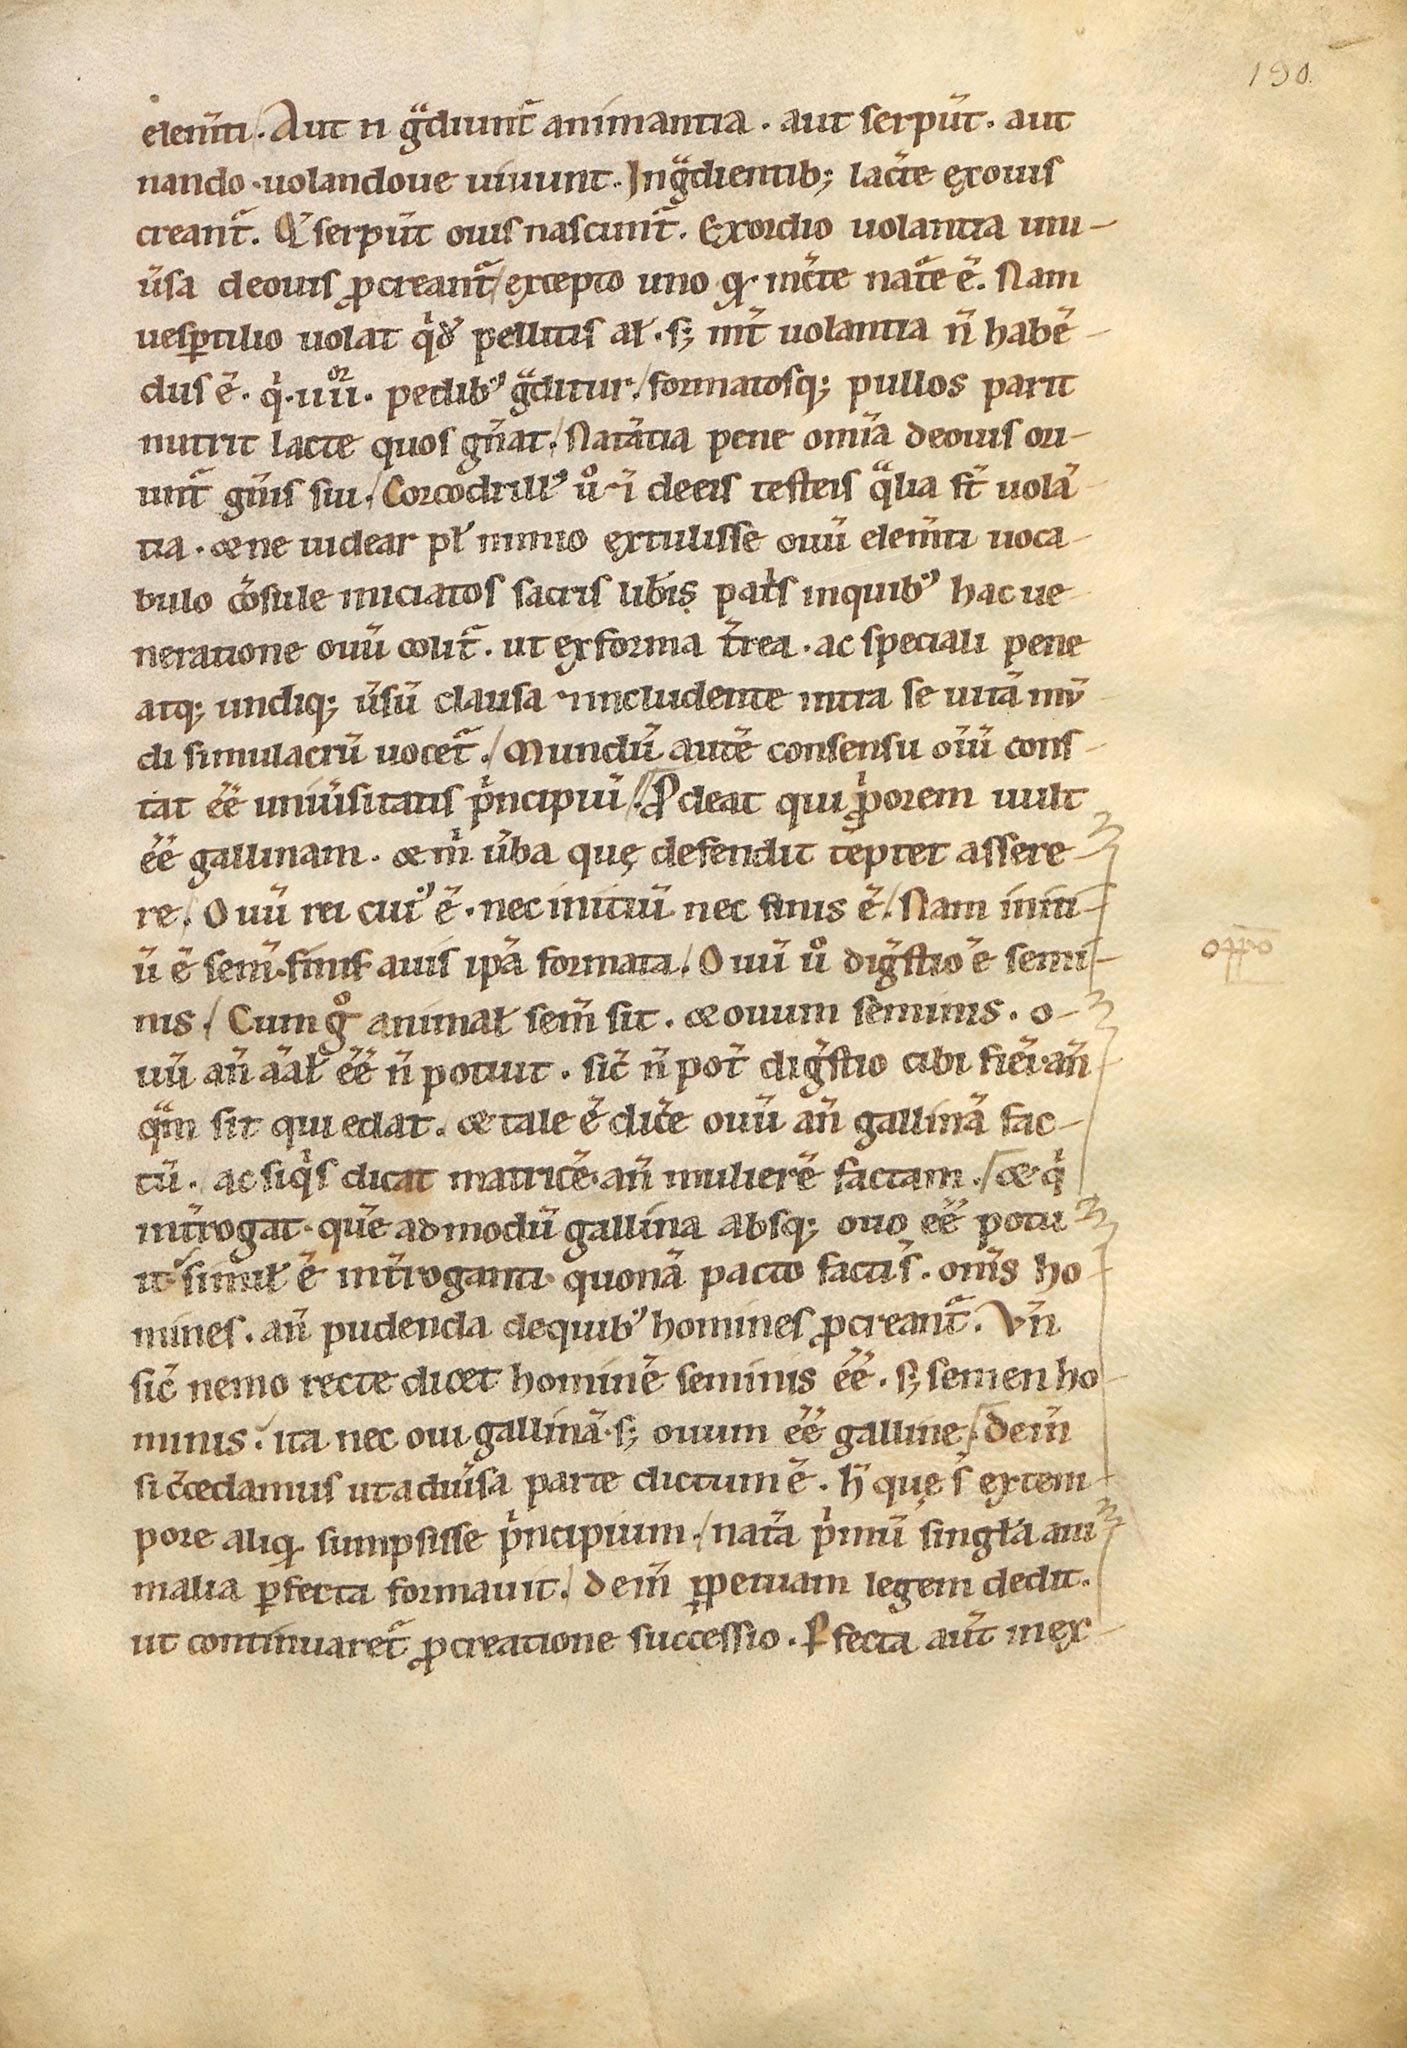 190.
elem̄ti. Aut n̄ gͣdiunt᷑ animantia. aut serpūt. aut
nando. uolandoue uiuunt. Ingͣdientib; lac̄te ęxouis
creant᷑. Q̄ serpūt ouis nascunt᷑. Exordio uolantia uni-
ūsa deouis ꝓcreant᷑/ excepto uno qͦ inc̄te nat᷑e ē. Nam
uesꝑtilio uolat qͥdē pellitis aƚ. s; int̄ uolantia n̄ habē-
dus ē. qͥ .iiiiᵒʳ. pedibꝰ gͣditur./ formatosq; pullos parit
nutrit lacte quos gn̄at./ Natātia pene om̄ia deouis ori-
unt᷑ gn̄is sui./ Corcodrillꝰ uͦ ⁊ i deeis testeis qͣlia st̄ uolā-
tia. & ne uidear pƚ nimio ęxtulisse ouū elem̄ti uoca-
bulo c̄osule iniciatos sacris lib̄is pat̄s inquibꝰ hac ue-
neratione ouū colit᷑. ut exforma t̄rea. ac speciali pene
atq; undiq; ūsū clausa ⁊ includente intra se uitā mū-
di simulacrū uocet᷑./ Mundū autē consensu oīū cons-
tat ēē uniūsitatis pͥncipiū/. Ꝓdeat qui pͥorem uult
ēē gallinam. & in̄ ūba quę defendit tēptet assere-
re./ Ouū rei cuiꝰ ē. nec initiū nec finis ē./ Nam initi-
ū ē sem̄. finis auis ip̄a formata./ Ouū uͦ diḡstio ē semi-
nis./ Cum gͦ animaƚ sem̄ sit. & ouum seminis. o-
uū an̄ aāƚ ēē n̄ potuit. sic̄ n̄ pot̄ diḡstio cibi fiēi. an̄
qͣm sit qui edat. & tale ē dic̄e ouū an̄ gallinā fac-
tū. ac siqͥs dicat matricē. an̄ mulierē factam./ & qͥ
int̄rogat. quē admodū gallina absq; ouo ēē potu-
it. simiƚ ē int̄roganti. quonā pacto facti s̄. om̄s ho-
mines. an̄ pudenda dequibꝰ homines ꝓcreant᷑. Vn̄
sic̄ nemo recte dicet hominē seminis ēē. s; semen ho-
minis. ita nec oui gallinā. s; ouum ēē galline./ dein̄
si c̄cedamus ut adūsa parte dictum ē. h̄ quę s̄ extem-
pore aliqͦ sumpsisse pͥncipium./ nat᷑a pͥmū singƚa ani-
malia ꝑfecta formauit./ dein̄ ꝑpetuam legem dedit.
ut continuaret᷑ ꝓcreatione successio. Ꝑfecta aut̄ inex-
oppo